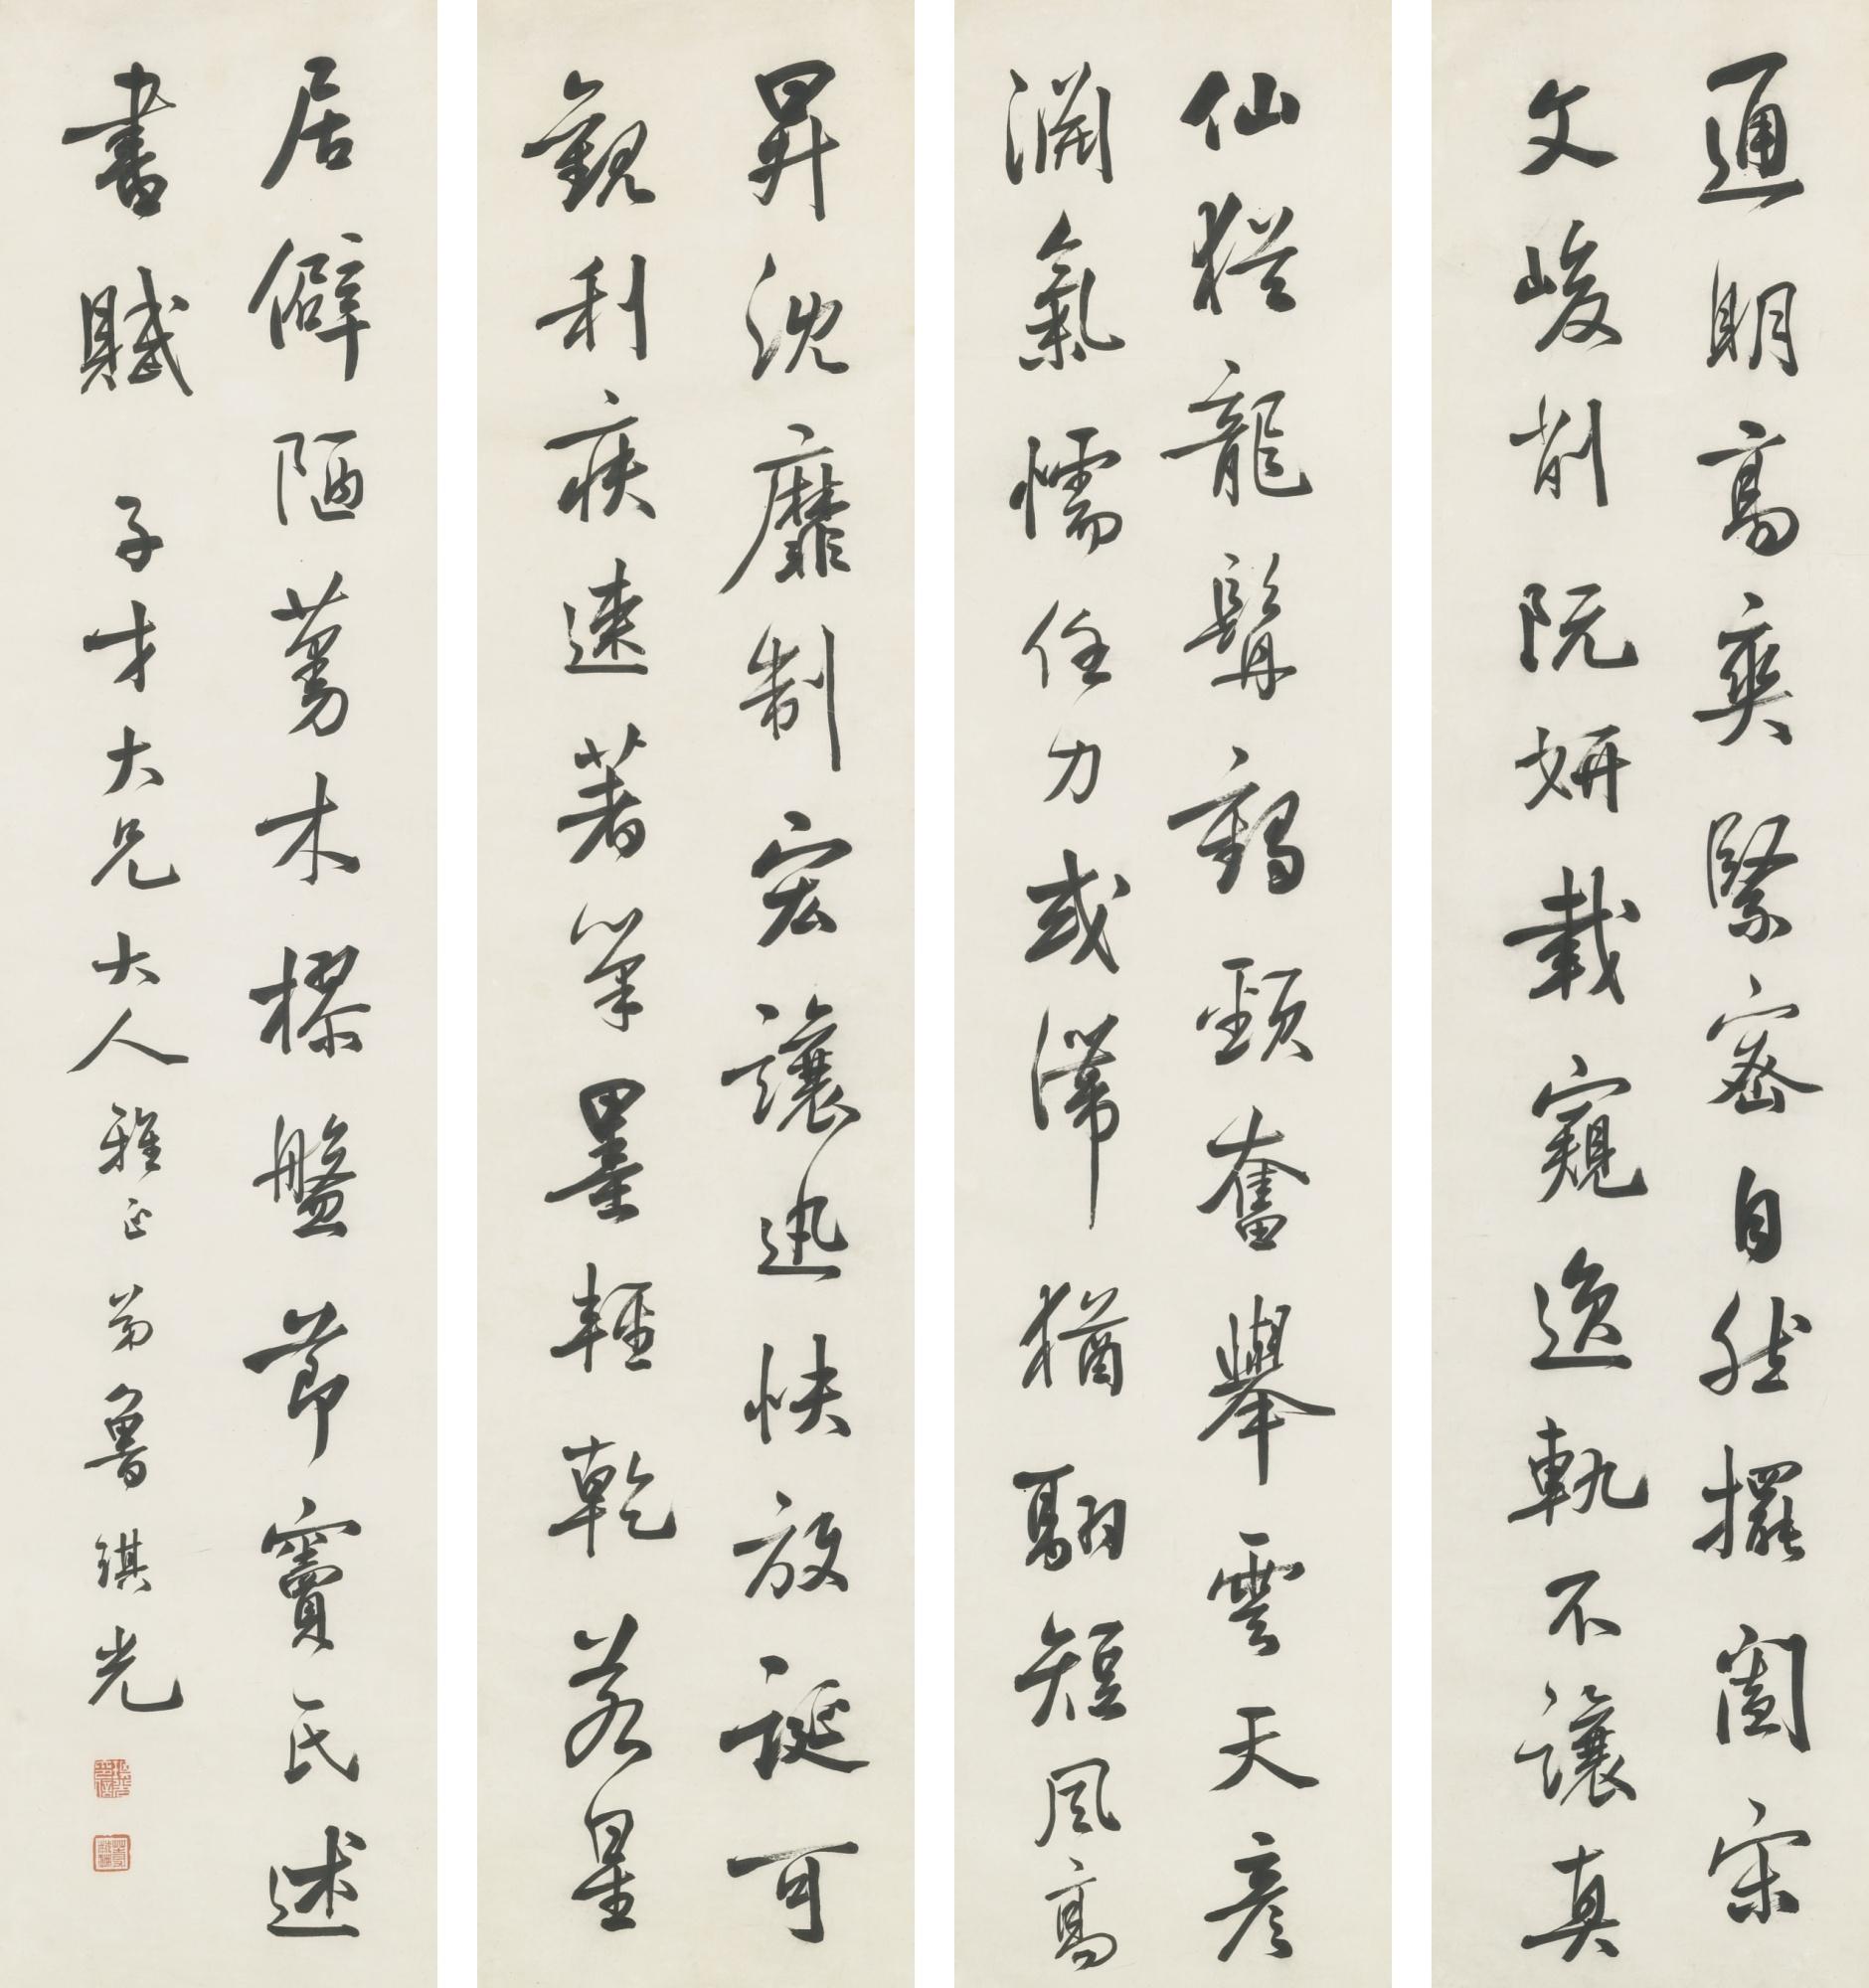 通明高爽緊密自然擺闔宋
文峻削阮妍載窺逸軌不讓真
仙猶龍髯鶴頸奮舉雲天彥
淵氣懦任力或滯猶翮短風高
昇沈靡制宏讓迅快放誕可
觀利疾速著筆墨輕乾若星
居僻陋蒭木樛盤節竇氏述
書賦 子才大兄大人雅正弟魯琪光